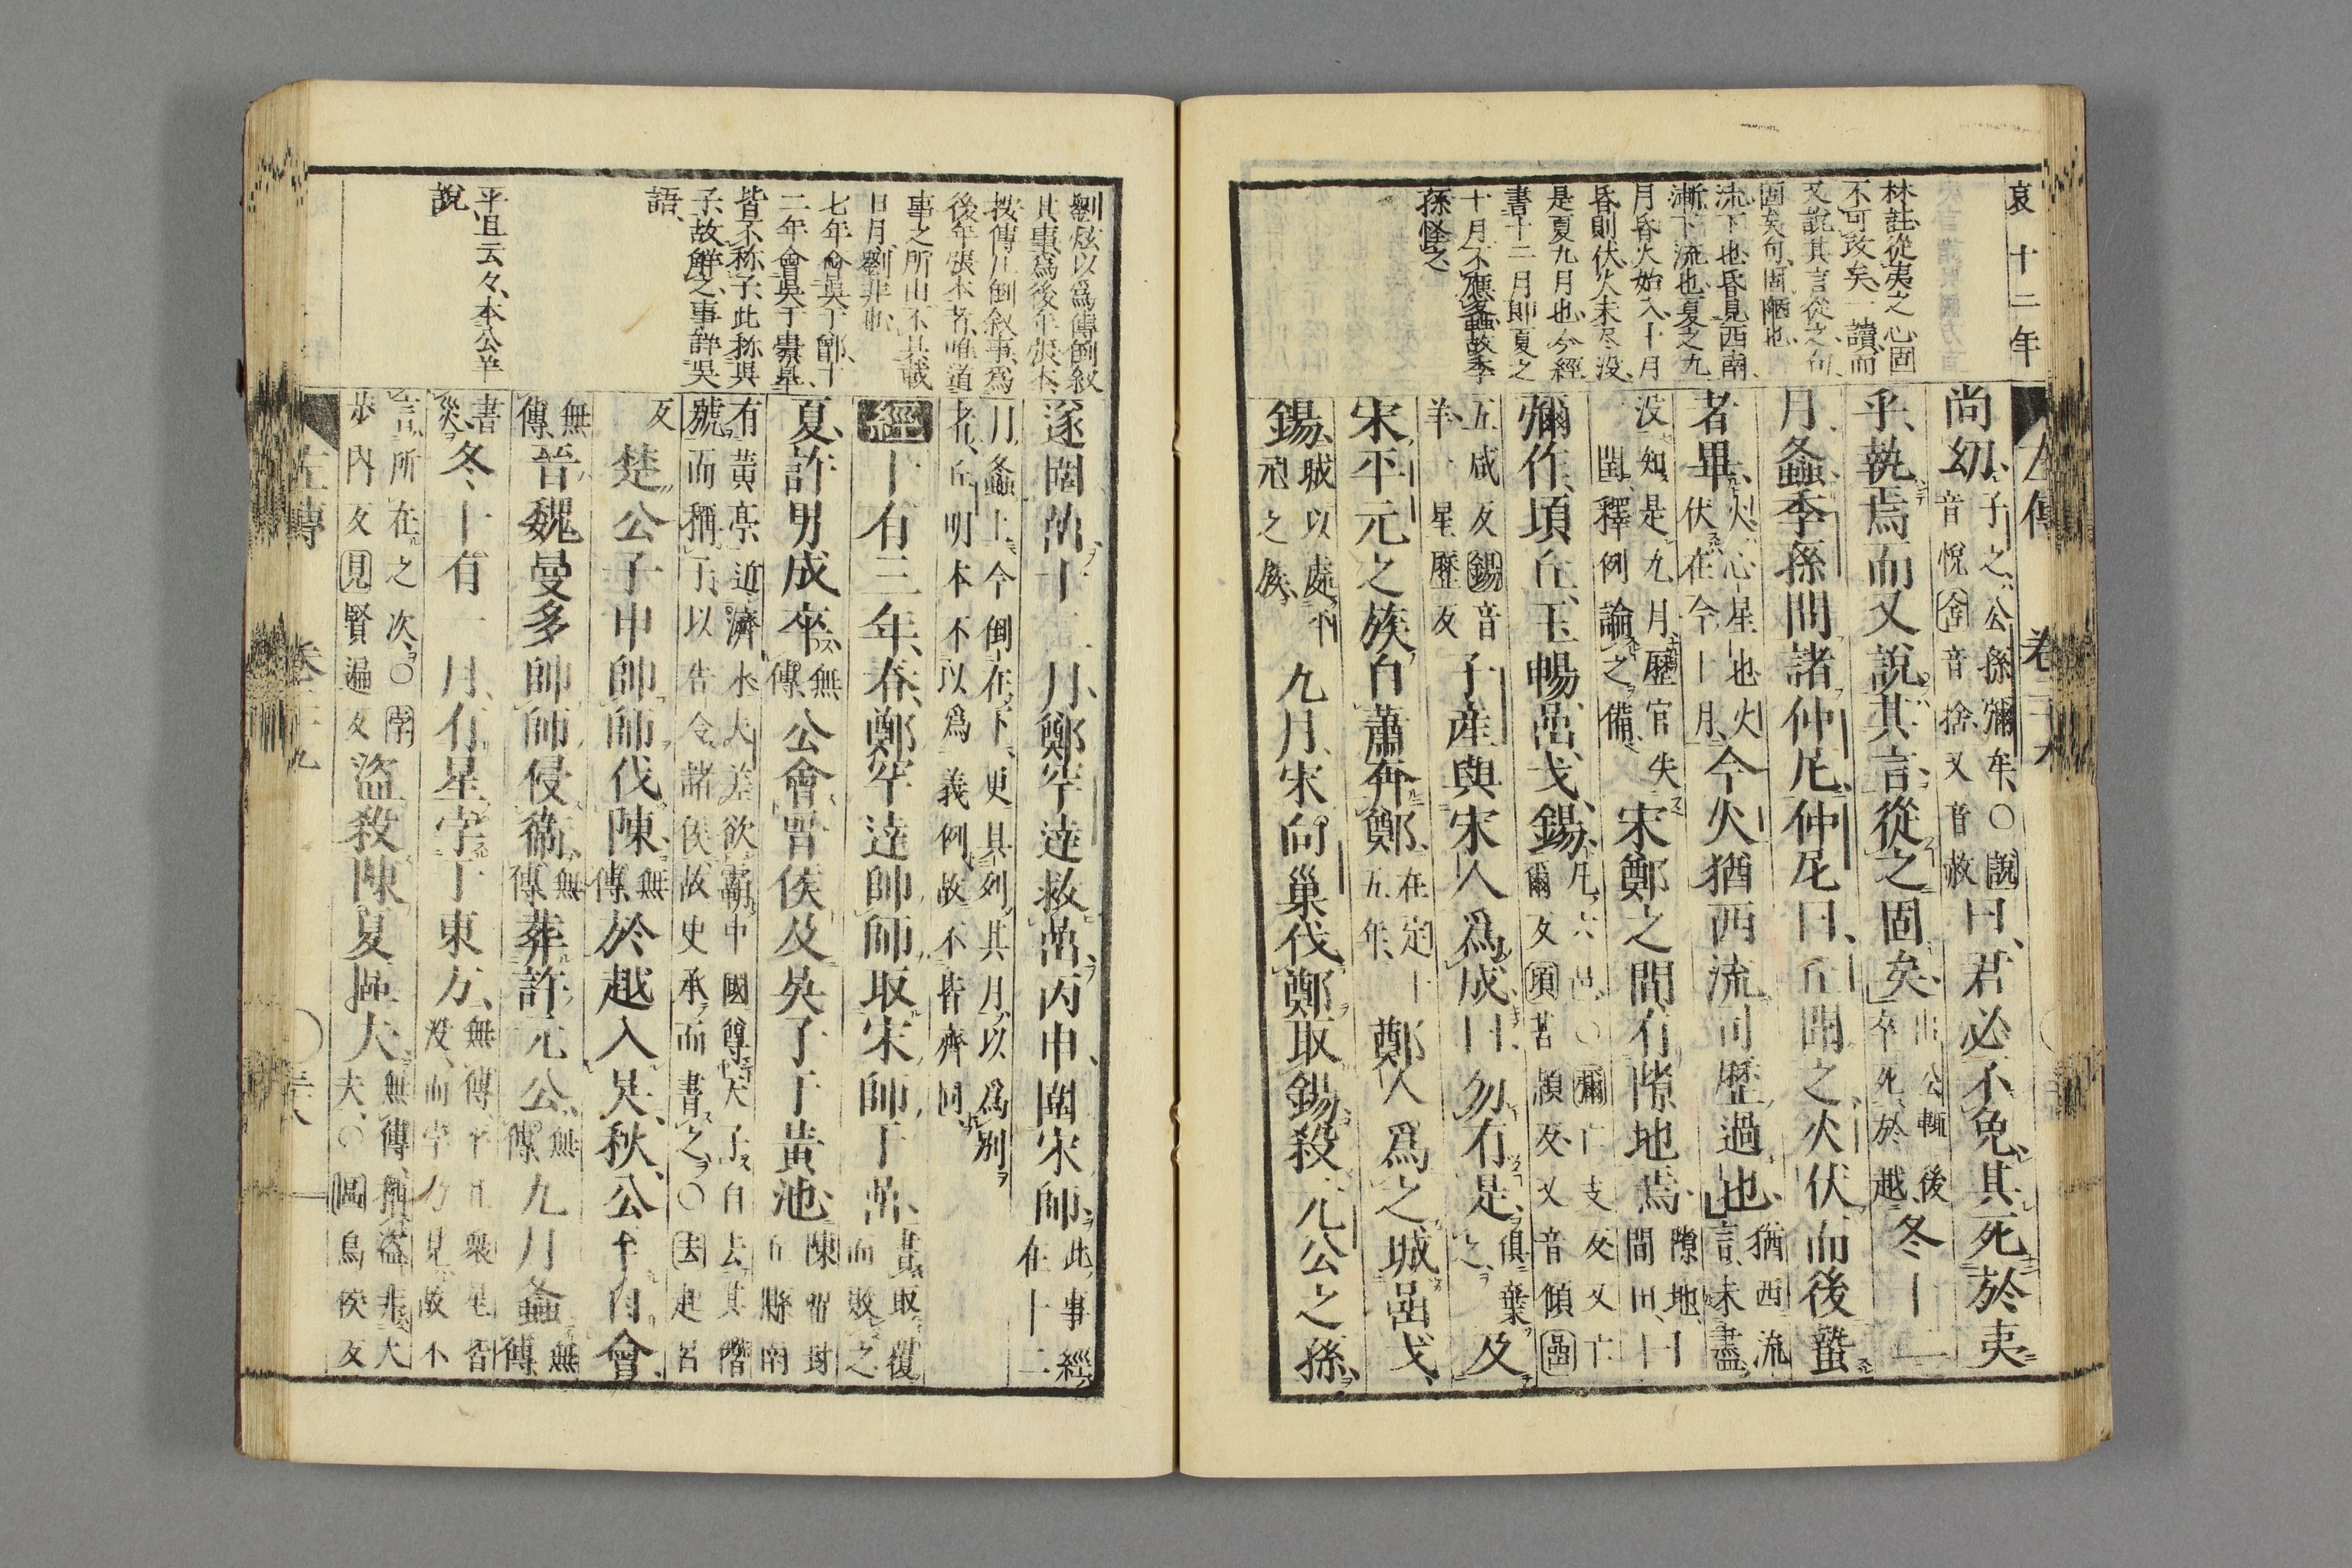 哀十二年
林註從夷之心固
不可改矣一讀而
又說其言從之句
固矣句固陋也
流下也昏見西南
漸下流也夏之九
月昏火始入十月
昏則伏火未尽没
是夏九月也今經
書十二月即夏之
十月不應多螽故季
孫怪之
左傳 卷二十九
尚幼子之公孫彌牟○說音悅舍音捨又音赦曰君必不免其死於夷
乎執焉而又說其言從之固矣出公輒後卒死於越冬十二
月螽季孫問諸仲尼仲尼曰丘聞之火伏而後蟄
者畢火心星也火伏在今十月今火猶西流司歷過也猶西流言未盡
没知是九月歷官失閏釋例論之備宋鄭之間有隙地焉隙地間田曰
彌作頃丘玉暢嵒戈鍚凡六邑○彌亡支反又亡爾反頃苦潁反又音傾嵒
五咸反鍚音羊一星歷反子產與宋人爲成曰勿有是俱棄之及
宋平元之族自蕭奔鄭在定十五年鄭人爲之城嵒戈
鍚城以處平元之族九月宋向巢伐鄭取鍚殺元公之孫
劉炫以爲傳倒敘
其事爲後年張本
按傳凡倒敘事爲
後年張本者唯道
事之所由不具載
日月劉非也
七年會吳于鄫十
二年會吳于橐皐
皆不称子此称與
子故觧之事詳吳
語
平旦云々本公羊
說
遂圍嵒十二月鄭罕達救嵒丙申圍宋師此事經在十二
月螽上今倒在下更具列其月以爲別者丘明本不以爲義例故不皆齊同
經十有三年春鄭罕達帥師取宋師于嵒書取覆而敗之
夏許男成卒無傳公會晉侯及吳子于黃池陳留封丘縣南
有黃亭近濟水夫差欲霸中國尊天子自去其僭號而稱子以告令諸侯故史承而書之○去起呂
反楚公子申帥師伐陳無傳於越入吳秋公至自會
無傳晉魏曼多帥師侵衞無傳葬許元公無傳九月螽無傳
書災冬十有一月有星孛于東方無傳平旦衆星皆没而孛乃見故不
言所在之次○孛步內反見賢遍反盜殺陳夏區夫無傳稱盜非大夫○區烏侯反
左傳 卷二十九 三十八